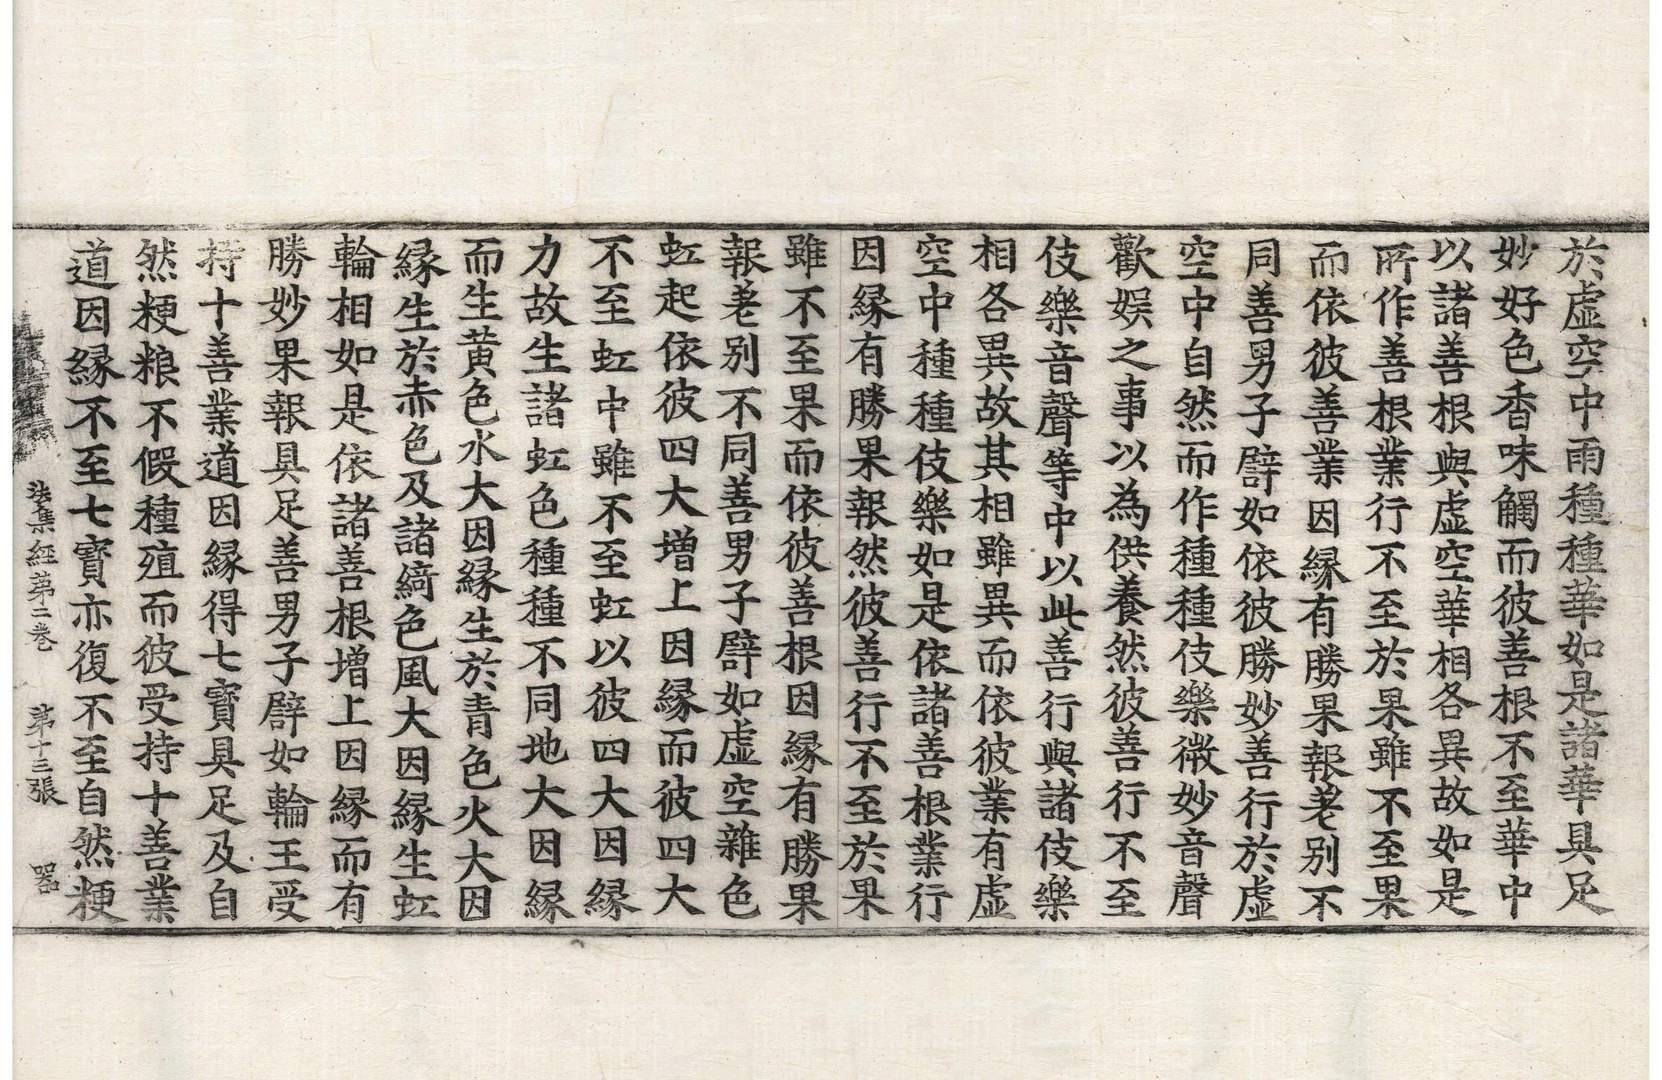 於虛空中雨種種華如是諸華具足
妙好色香味觸而彼善根不至華中
以諸善根與虛空華相各異故如是
所作善根業行不至於果雖不至果
而依彼善業因緣有勝果報差別不
同善男子譬如依彼勝妙善行於虛
空中自然而作種種伎樂微妙音聲
歡娛之事以為供養然彼善行不至
伎樂音聲等中以此善行與諸伎樂
相各異故其相雖異而依彼業有虛
空中種種伎樂如是依諸善根業行
因緣有勝果報然彼善行不至於果
雖不至果而依彼善根因緣有勝果
報差別不同善男子譬如虛空雜色
虹起依彼四大增上因緣而彼四大
不至虹中雖不至虹以彼四大因緣
力故生諸虹色種種不同地大因緣
而生黃色水大因緣生於青色火大因
緣生於赤色及諸綺色風大因緣生虹
輪相如是依諸善根增上因緣而有
勝妙果報具足善男子譬如輪王受
持十善業道因緣得七寶具足及自
然粳粮不假種殖而彼受持十善業
道因緣不至七寶亦復不至自然粳
集經第二卷 第十三張 器